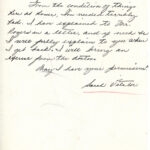 From the condition of things
here at home, I'm needed terribly
bad. I have explained to Mr.
Rogers in a letter and if need be
I will fully explain to you when
I get back. I will bring an
excuse from the doctor.
May I have your permission?